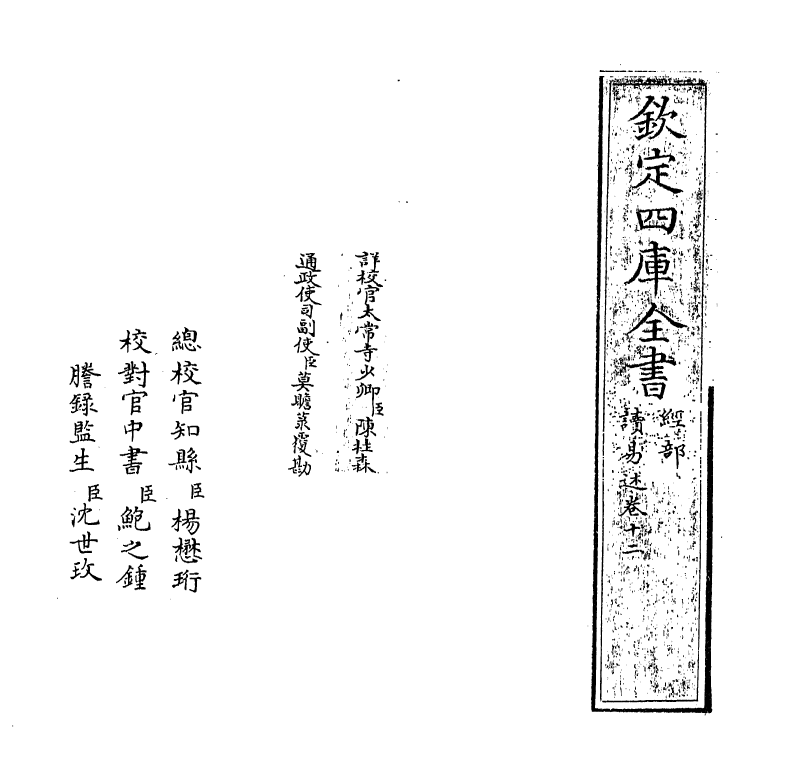 欽定四庫全書
經部
讀易述卷十二
詳校官太常寺少卿臣陳桂森
通政使司副使臣莫瞻菉覆勘
總校官知縣臣楊懋珩
校對官中書臣鮑之鍾
謄錄監生臣沈世玫